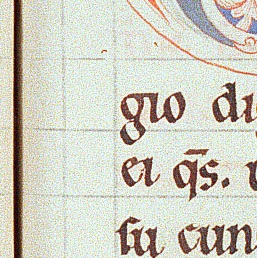 gio di
ei qs̄.
su cun